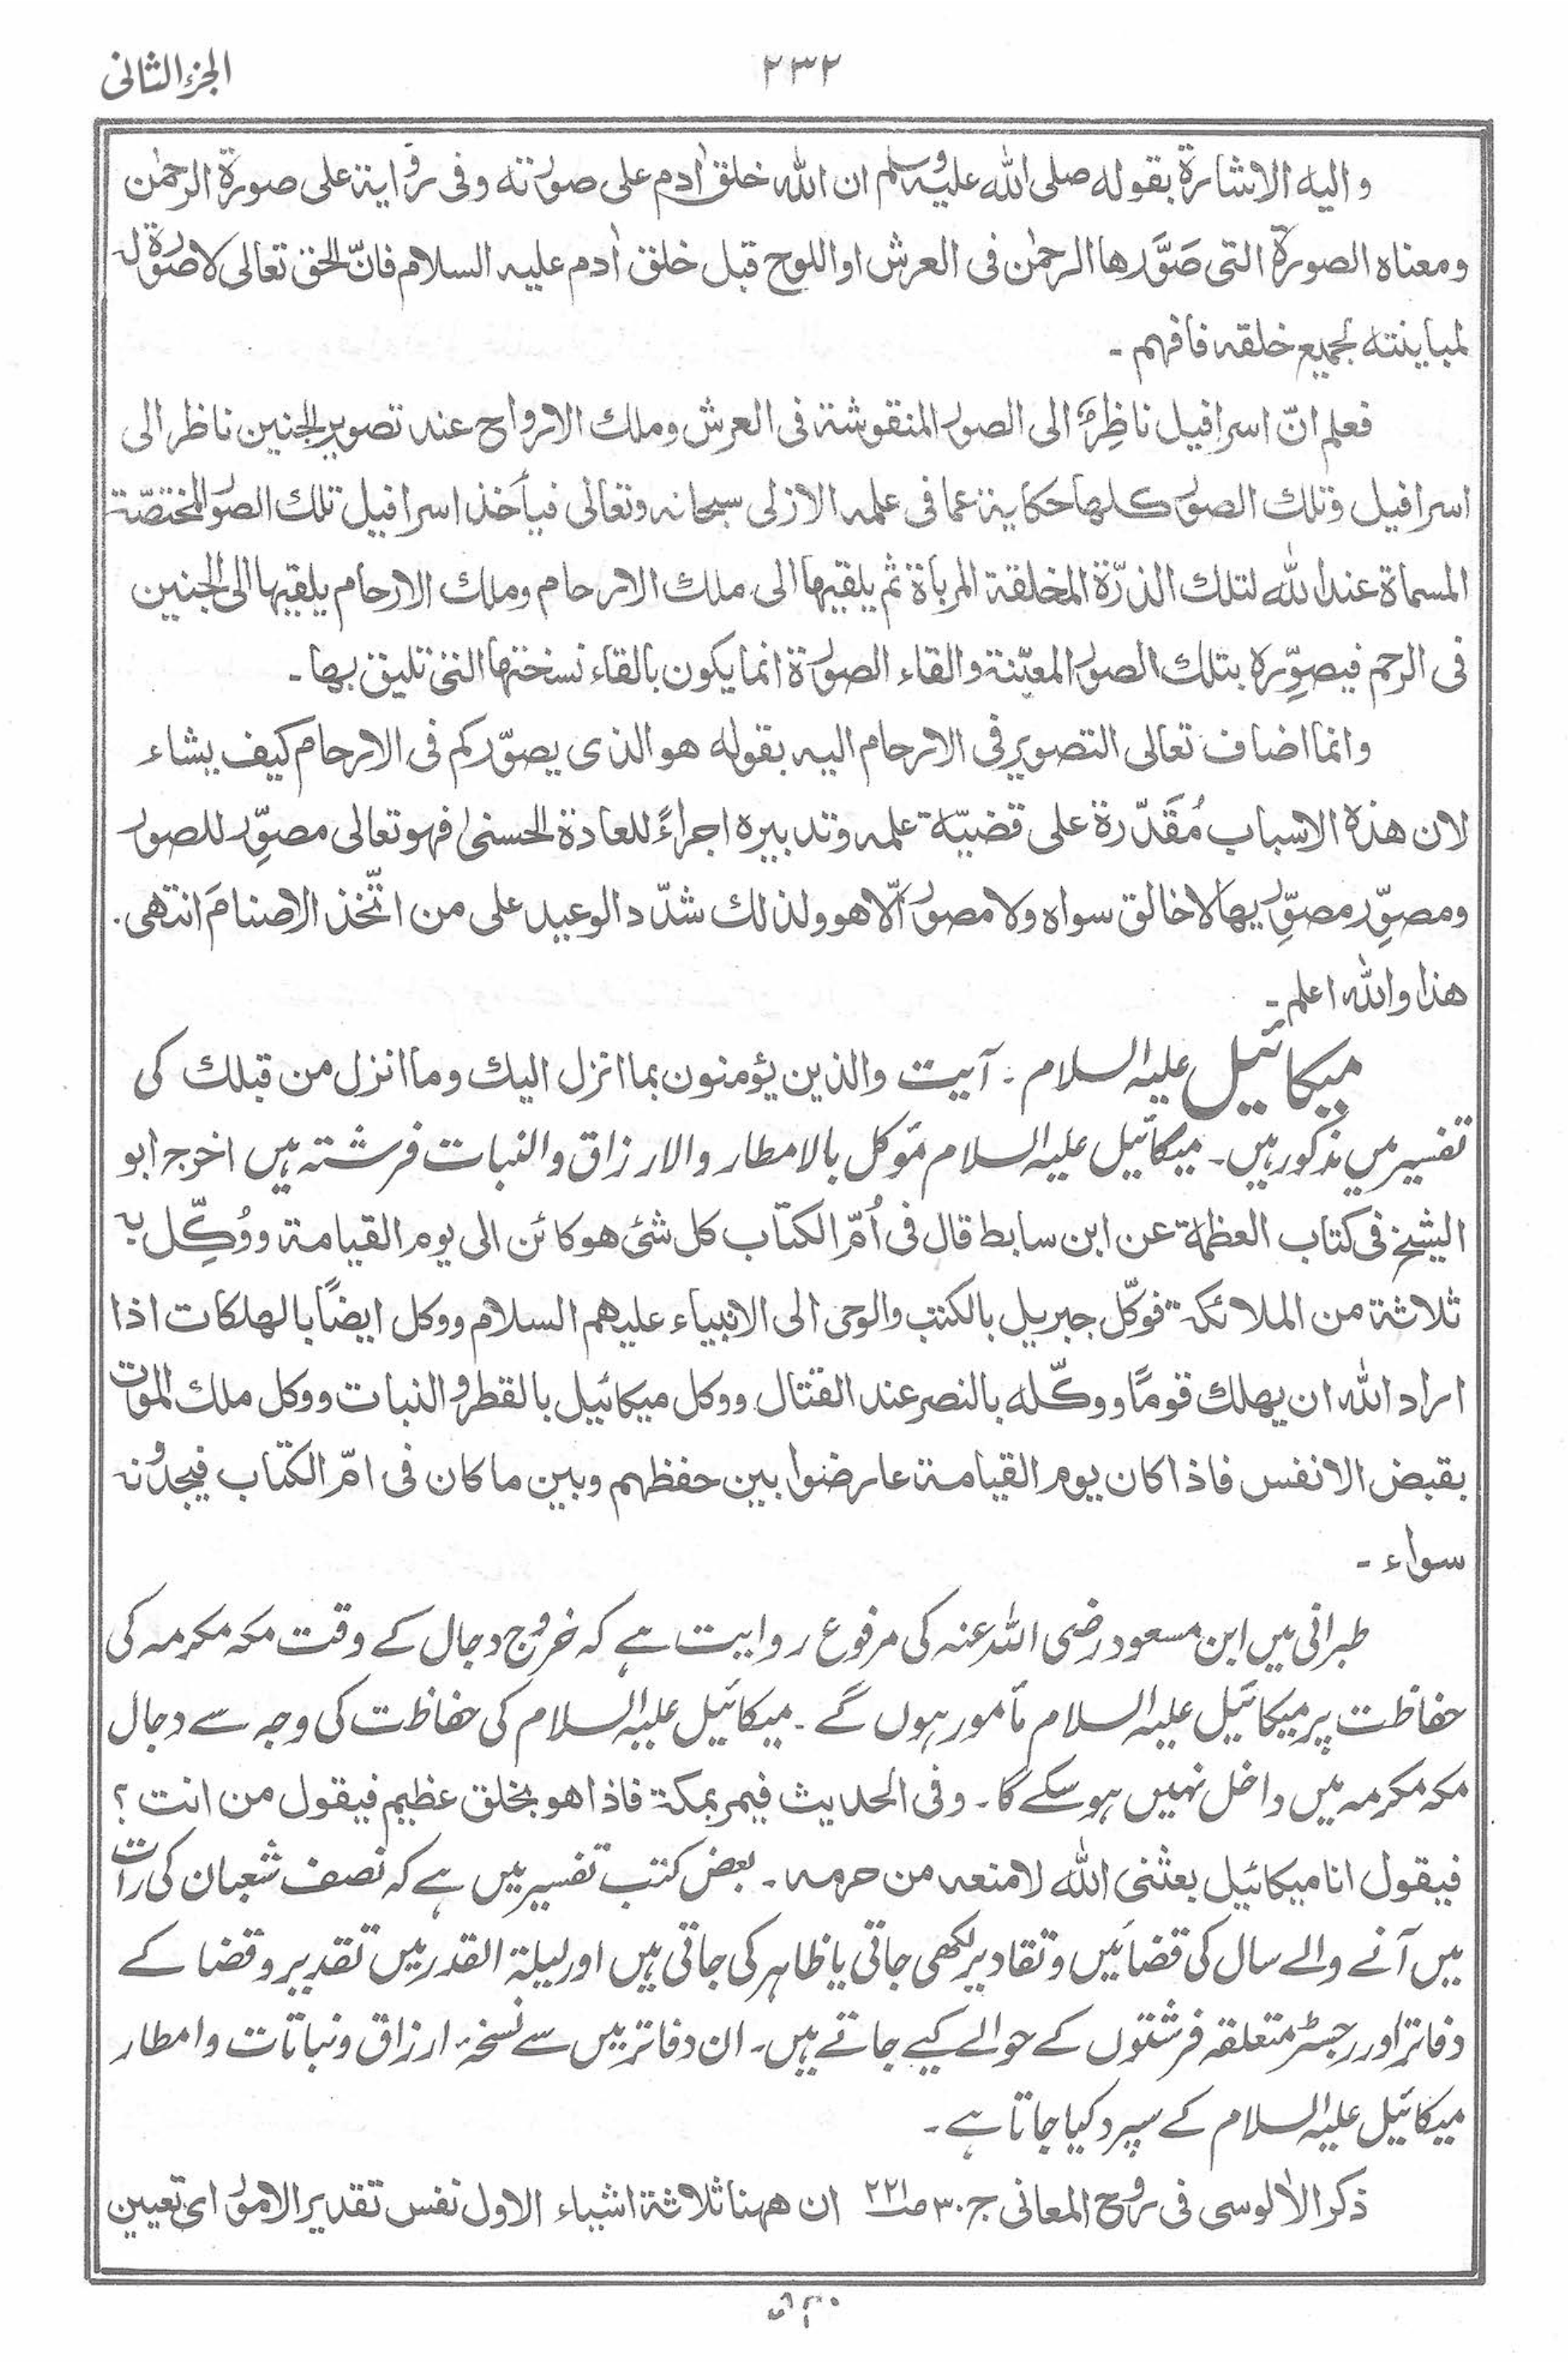 الجزء الثانی
۲۳۲
و الیه الاشارة بقوله صلی الله علیه وسلم ان الله خلق اٰدم علی صورته وفی روایة علی صورة الرحمٰن
ومعناه الصورة التی صَوَّرها الرحمٰن فی العرش او اللوح قبل خلق اٰدم علیه السلام فانّ الحق تعالی لا صورة له
لمباینته لجمیع خلقه فافهم ۔
فعلم انّ اسرافیل ناظِرٌ الی الصور المنقوشة فی العرش وملك الارواح عند تصویر الجنین ناظر الی
اسرافیل وتلك الصور کلها حکایة عما فی علمه الازلی سبحانه وتعالی فیأخذ اسرافیل تلك الصور المختصّة
المسماة عند الله لتلك الذرّة المخلقة المرباة ثم یلقیها الی ملك الارحام وملك الارحام یلقیها الی الجنین
فی الرحم فیصوِّره بتلك الصور المعیّنة والقاء الصورة انما یکون بالقاء نسختها التی تلیق بها ۔
وانما اضاف تعالی التصویر فی الارحام الیه بقوله هو الذی یصوّرکم فی الارحام کیف یشاء
لان هذه الاسباب مُقَدّرة علی قضیّة علمه وتدبیره اجراءً للعادة الحسنیٰ فهو تعالی مصوِّر للصور
ومصوِّر مصوِّریها لا خالق سواه ولا مصور الّا هو ولذلك شدّد الوعید علی من اتّخذ الاصنامَ انتهی ۔
هذا والله اعلم ۔
میکائیل علیہ السلام ۔ آیت والذین یؤمنون بما انزل الیك وما انزل من قبلك کی
تفسیر میں مذکور ہیں ۔ میکائیل علیہ السلام مؤکل بالامطار والارزاق والنبات فرشتہ ہیں اخرج ابو
الشیخ فی کتاب العظمة عن ابن سابط قال فی اُمّ الکتاب کل شئ هو کائن الی یوم القیامة ووُکِّل به
ثلاثة من الملائکة فوکّل جبریل بالکتب والوحی الی الانبیاء علیهم السلام ووکل ایضًا بالهلکات اذا
اراد الله ان یهلك قومًا ووکّله بالنصر عند القتال ووکل میکائیل بالقطر والنبات ووکل ملك الموت
بقبض الانفس فاذا کان یوم القیامة عارضوا بین حفظهم وبین ما کان فی امّ الکتاب فیجدونه
سواء ۔
طبرانی میں ابن مسعود رضی اللہ عنہ کی مرفوع روایت ہے کہ خروج دجال کے وقت مکہ مکرمہ کی
حفاظت پر میکائیل علیہ السلام مأمور ہوں گے ۔ میکائیل علیہ السلام کی حفاظت کی وجہ سے دجال
مکہ مکرمہ میں داخل نہیں ہو سکے گا ۔ وفی الحدیث فیمر بمکة فاذا هو بخلق عظیم فیقول من انت ؟
فیقول انا میکائیل بعثنی الله لامنعه من حرمه ۔ بعض کتب تفسیر میں ہے کہ نصف شعبان کی رات
میں آنے والے سال کی قضائیں وتقادیر لکھی جاتی یا ظاہر کی جاتی ہیں اور لیلۃ القدر میں تقدیر وقضا کے
دفاتر اور رجسٹر متعلقہ فرشتوں کے حوالے کیے جاتے ہیں ۔ ان دفاتر میں سے نسخۂ ارزاق ونباتات وامطار
میکائیل علیہ السلام کے سپرد کیا جاتا ہے ۔
ذکر الاٰلوسی فی روح المعانی ج ۳۰ ص ۲۲۱ ان ههنا ثلاثة اشیاء الاول نفس تقدیر الامور ای تعیین